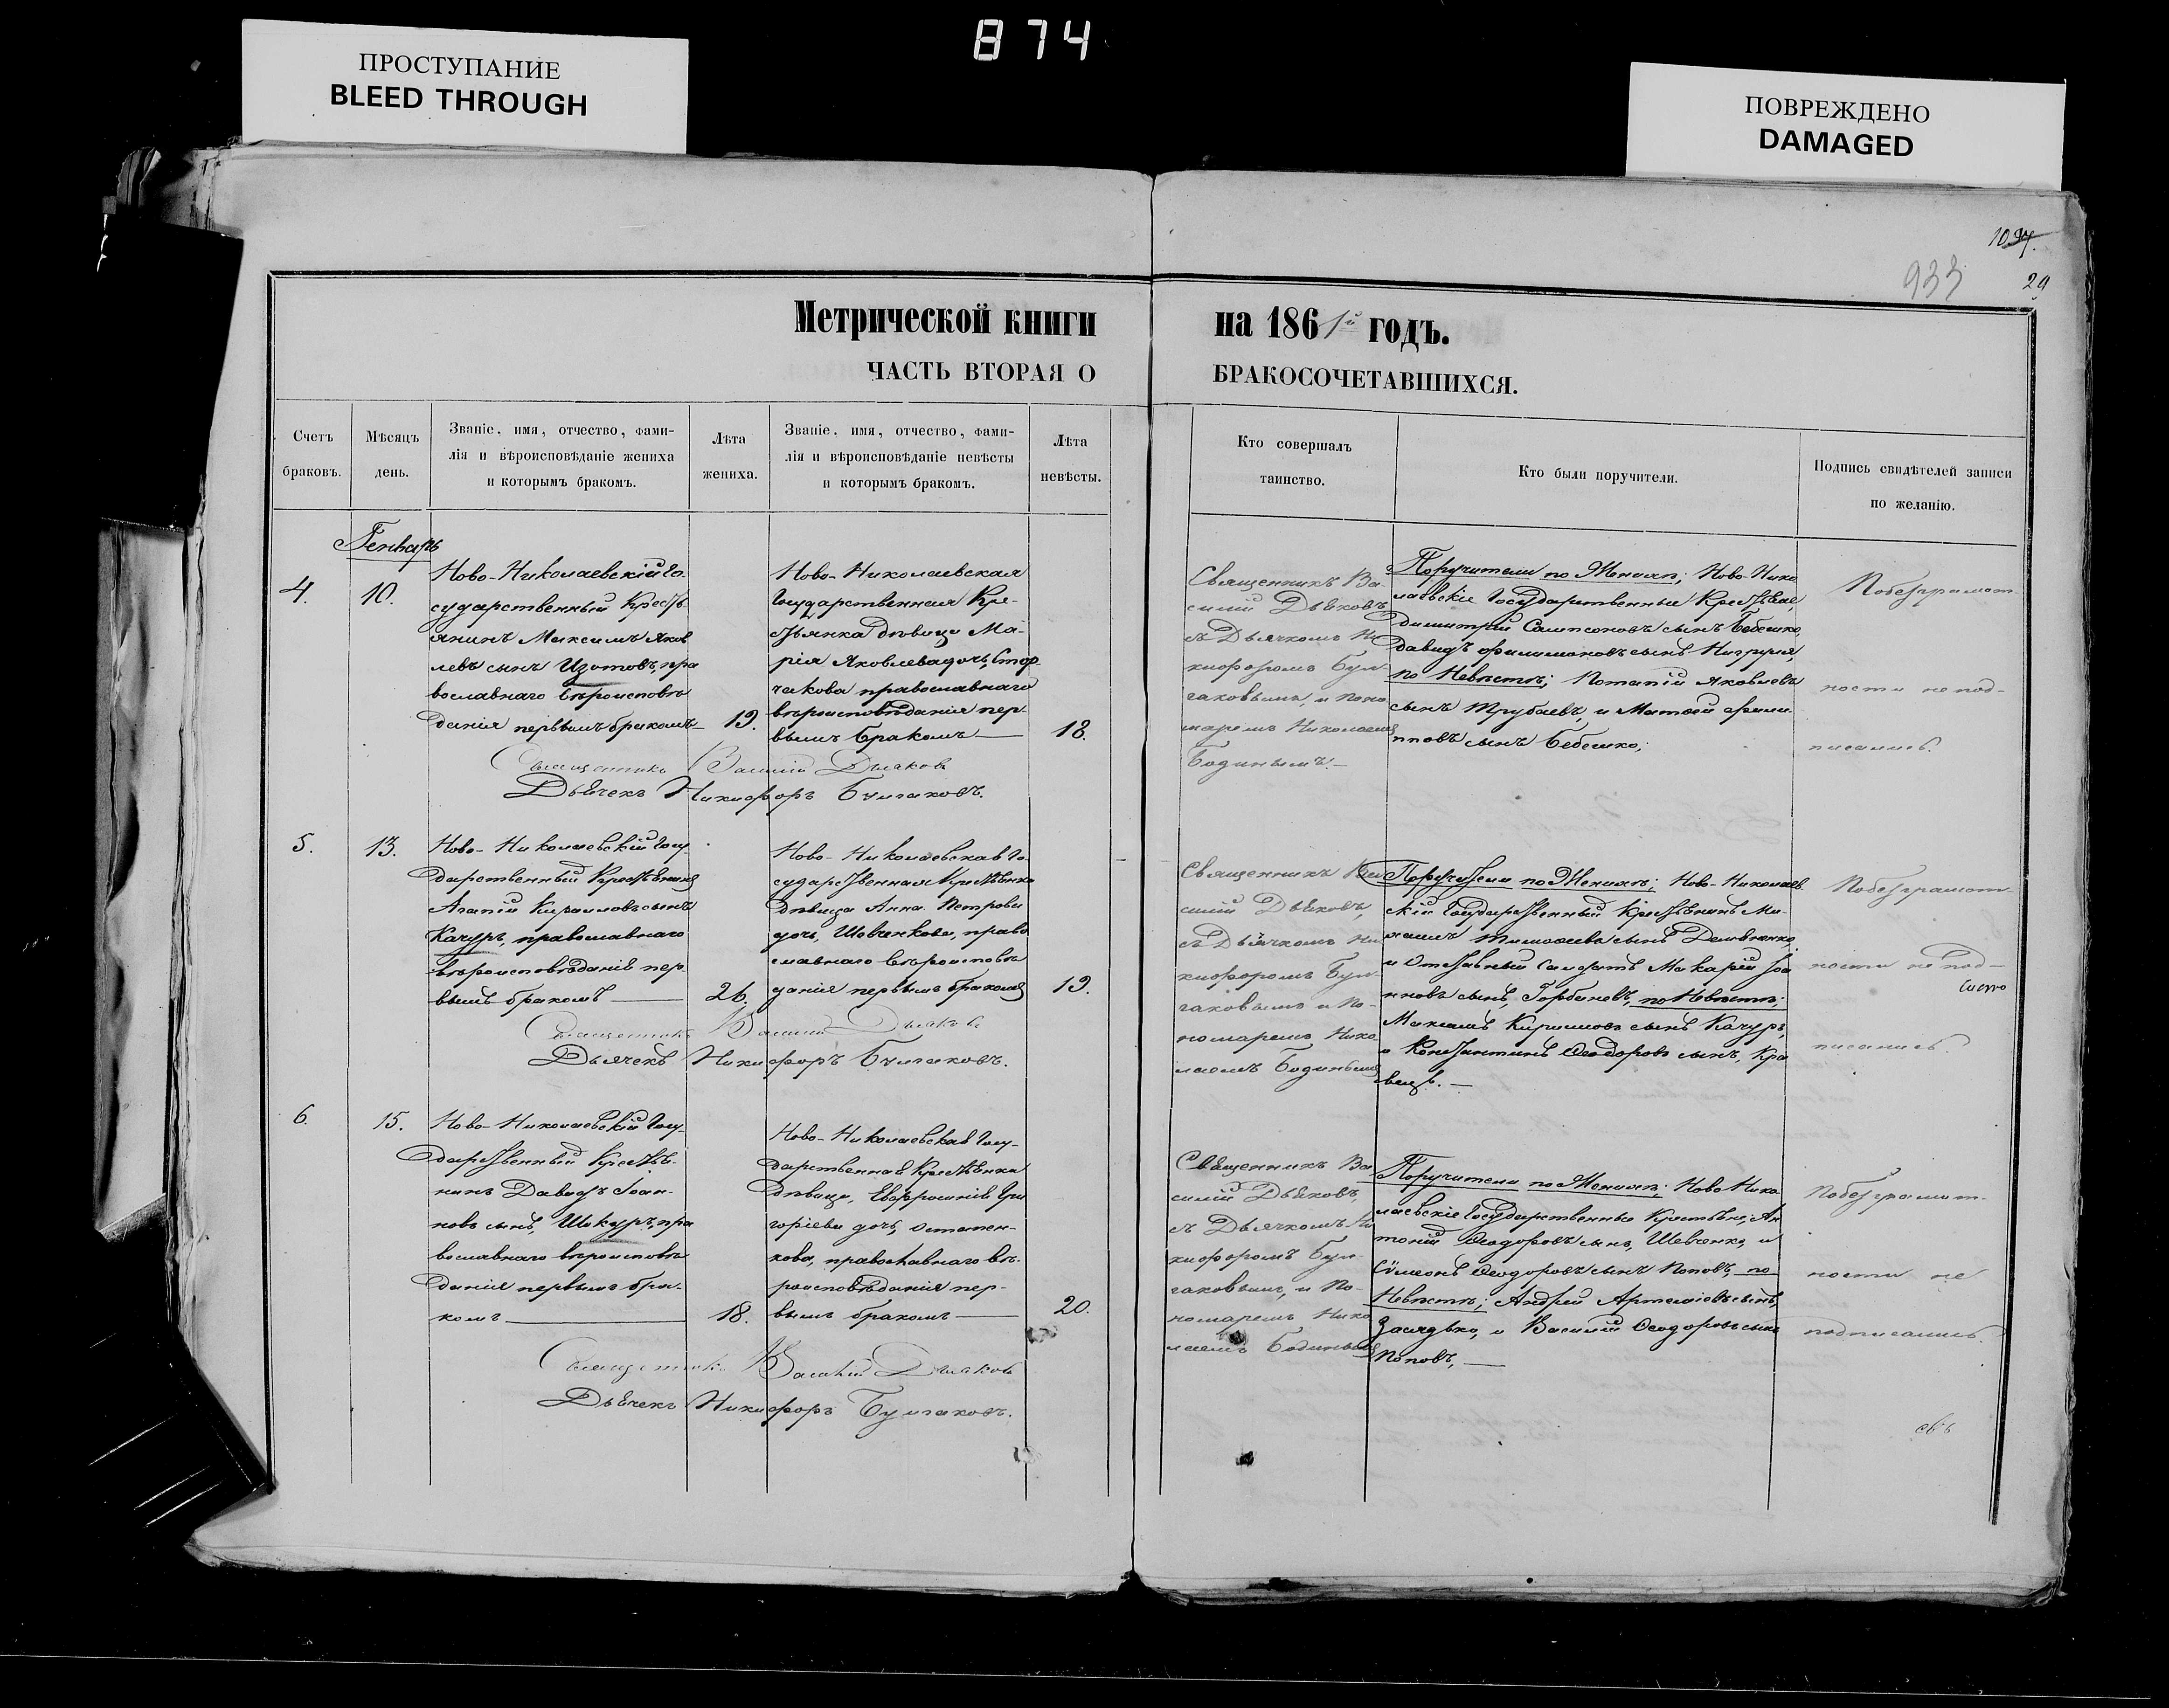 874
ПРОСТУПАНИЕ
BLEED THROUGH
ПОВРЕЖДЕНО
DAMAGED
933
29
Метрической книги на 1861й годъ.
ЧАСТЬ ВТОРАЯ О БРАКОСОЧЕТАВШИХСЯ.
Счетъ
браковъ.
Мѣсяцъ
день.
Званіе, имя, отчество, фами-
лія и вѣроисповѣданіе жениха
и которымъ бракомъ.
Лѣта
жениха.
Званіе, имя, отчество, фами-
лія и вѣроисповѣданіе невѣсты
и которымъ бракомъ.
Лѣта
невѣсты.
Кто совершалъ
таинство.
Кто были поручители.
Подпись свидѣтелей записи
по желанію.
Генварь
4.
10.
Ново-Николаевскій Го-
сударственный Кресть-
янинъ Максимъ Яков-
левъ сынъ Изотовъ, пра
вославнаго вѣроисповѣ
данія первымъ бракомъ
19.
Ново-Николаевская
Государственная Кре-
стьянка дѣвица Ма-
рія Яковлева дочь,
чакова православнаго
вѣроисповѣданія пер-
вымъ бракомъ
18.
Священникъ Ва-
силій Дьяковъ,
съ Дьячкомъ Ни
кифоромъ Бул-
гаковымъ, и Поно
маремъ Николаемъ
Бодинымъ.
Поручители по Женихѣ; Ново-Нико
лаевскіе Государственные Крестьяне,
Димитрій Сампсоновъ сынъ Бебешко,
Давидъ Филимоновъ сынъ
по Невѣстѣ; Потапій Яковлевъ
сынъ Трубаевъ, и Матвей Фили
пповъ сынъ Бебешко,
По безграмот-
ности не под-
писались.
Священникъ Василій Дьяковъ
Дьячекъ Никифоръ Булгаковъ.
5.
13.
Ново-Николаевскій Госу-
дарственный Крестьянинъ
Агапій Кириловъ сынъ
Качуръ, православнаго
вѣроисповѣданія пер-
вымъ бракомъ
26.
Ново-Николаевская Го-
сударственная Крестьянка
Дѣвица Анна Петрова
дочь, Шевченкова, право
славнаго вѣроисповѣ
данія первымъ бракомъ
19.
Священникъ Ва
силій Дьяковъ,
съ Дьячкомъ Ни
кифоромъ Бул-
гаковымъ и По-
номаремъ Нико
лаемъ Бодинымъ
Поручители по Женихѣ; Ново-Николаев
скій Государственный Крестьянинъ Ми-
хаилъ Тимофеевъ сынъ
и Отставный Солдатъ Макарій Іоа
нновъ сынъ, Горбаневъ, по Невѣстѣ;
Максимъ Кириловъ сынъ Качуръ,
и Константинъ Ѳеодоровъ сынъ, Кра
вецъ.
По безграмот-
ности не под-
писались.
Священникъ Василій Дьяковъ
Дьячекъ Никифоръ Булгаковъ.
6.
15.
Ново-Николаевскій Госу-
дарственный Крестья-
нинъ Давидъ Іоан-
новъ сынъ, Шикуръ, пра
вославнаго вѣроисповѣ
данія первымъ бра-
комъ
18.
Ново-Николаевская Госу-
дарственная Крестьянка
дѣвица, Евфросинія Гри
горіева дочь, Остапен-
кова, православнаго вѣ-
роисповѣданія пер-
вымъ бракомъ
20.
Священникъ Ва
силій Дьяковъ,
съ Дьячкомъ Ни
кифоромъ Бул-
гаковымъ, и По-
номаремъ Нико
лаемъ Бодинымъ
Поручители по Женихѣ; Ново Нико
лаевскіе Государственные Крестьяне, Ан
тоній Ѳеодоровъ сынъ, Шевченко, и
Сѵмеонъ Ѳеодоровъ сынъ Поповъ, по
Невѣстѣ; Андрей Артеміевъ сынъ,
Засядько, и Василій Ѳеодоровъ сынъ
Поповъ,
По безграмот-
ности не
подписались.
Священникъ Василій Дьяковъ
Дьячекъ Никифоръ Булгаковъ.